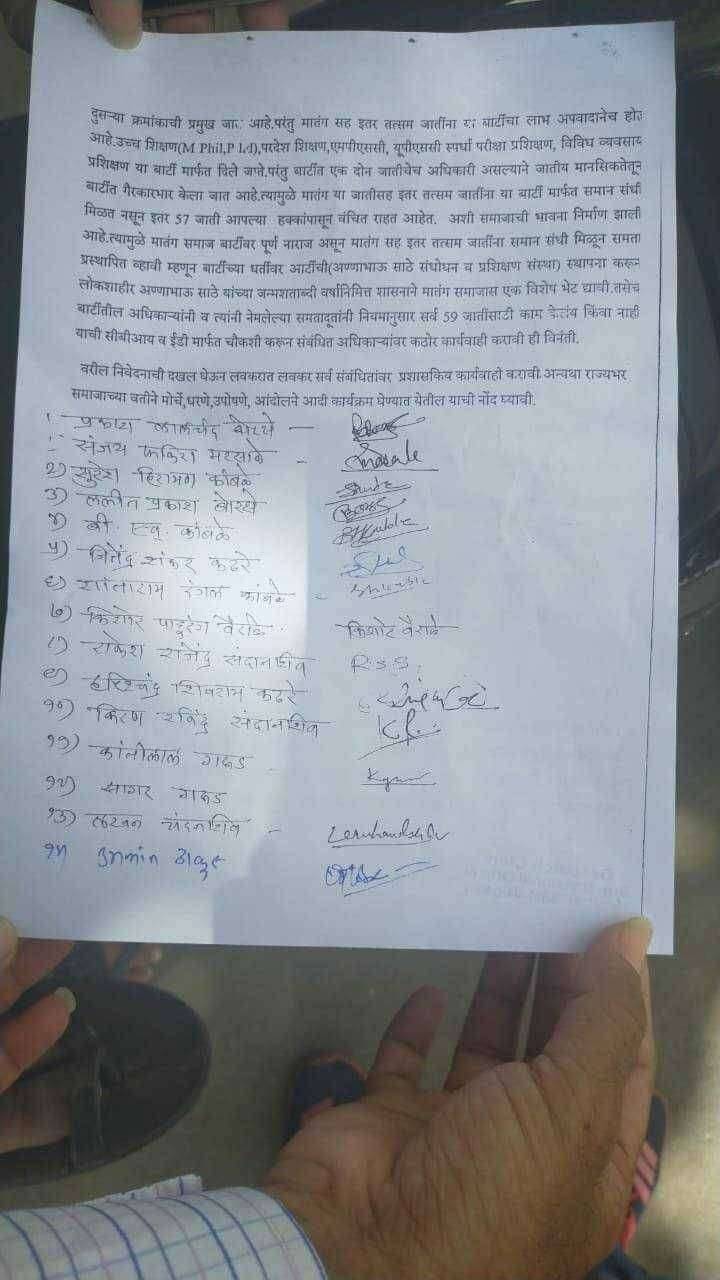 दुसऱ्या क्रमांकाची प्रमुख जात आहे.परंतु मातंग सह इतर तत्सम जातींना या बार्टीचा लाभ अपवादानेच होत
आहे.उच्च शिक्षण(M Phil,P hd),परदेश शिक्षण,एमपीएससी, यूपीएससी स्पर्धा परीक्षा प्रशिक्षण, विविध व्यवसाय
प्रशिक्षण या बार्टी मार्फत दिले जाते.परंतु बार्टीत एक दोन जातीचेच अधिकारी असल्याने जातीय मानसिकतेतून
बार्टीत गैरकारभार केला जात आहे.त्यामुळे मातंग या जातीसह इतर तत्सम जातींना या बार्टी मार्फत समान संधी
मिळत नसून इतर 57 जाती आपल्या हक्कांपासून वंचित राहत आहेत. अशी समाजाची भावना निर्माण झाली
आहे.त्यामुळे मातंग समाज बार्टीवर पूर्ण नाराज असून मातंग सह इतर तत्सम जातींना समान संधी मिळून समता
प्रस्थापित व्हावी म्हणून बार्टीच्या धर्तीवर आर्टीची(अण्णाभाऊ साठे संधोधन व प्रशिक्षण संस्था) स्थापना करून
लोकशाहीर अण्णाभाऊ साठे यांच्या जन्मशताब्दी वर्षानिमित्त शासनाने मातंग समाजास एक विशेष भेट द्यावी.तसेच
बार्टीतील अधिकाऱ्यांनी व त्यांनी नेमलेल्या समतादूतांनी नियमानुसार सर्व 59 जातींसाटी काम केलंय किंवा नाही
याची सीबीआय व ईडी मार्फत चौकशी करून संबंधित अधिकाऱ्यांवर कठोर कार्यवाही करावी ही विनंती.
वरील निवेदनाची दखल घेऊन लवकरात लवकर सर्व संबंधितांवर प्रशासकिय कार्यवाही करावी. अन्यथा राज्यभर
समाजाच्या वतीने मोर्चे,धरणे,उपोषणे, आंदोलने आदी कार्यक्रम घेण्यात येतील याची नोंद घ्यावी.
प्रकाश लालचंद बोरसे –
संजय फकिरा मरसाळे –
२) सुरेश हिरामण कांबळे
३) ललीत प्रकाश बोरसे
४) बी. एच. कांबळे
५) जितेंद्र शंकर कढरे
६) शांताराम कांबळे –
७) किशोर पांडुरंग वैराळे किशोर वैराळे
८) राकेश राजेंद्र संदानशिव R.S.S.
९) हरिश्चंद्र शिवराम कढरे
१०) किरण रविंद्र संदानशिव
११) कांतीलाल गारुड
१२) सागर गारुड
१३) चंदनशिव –
१४